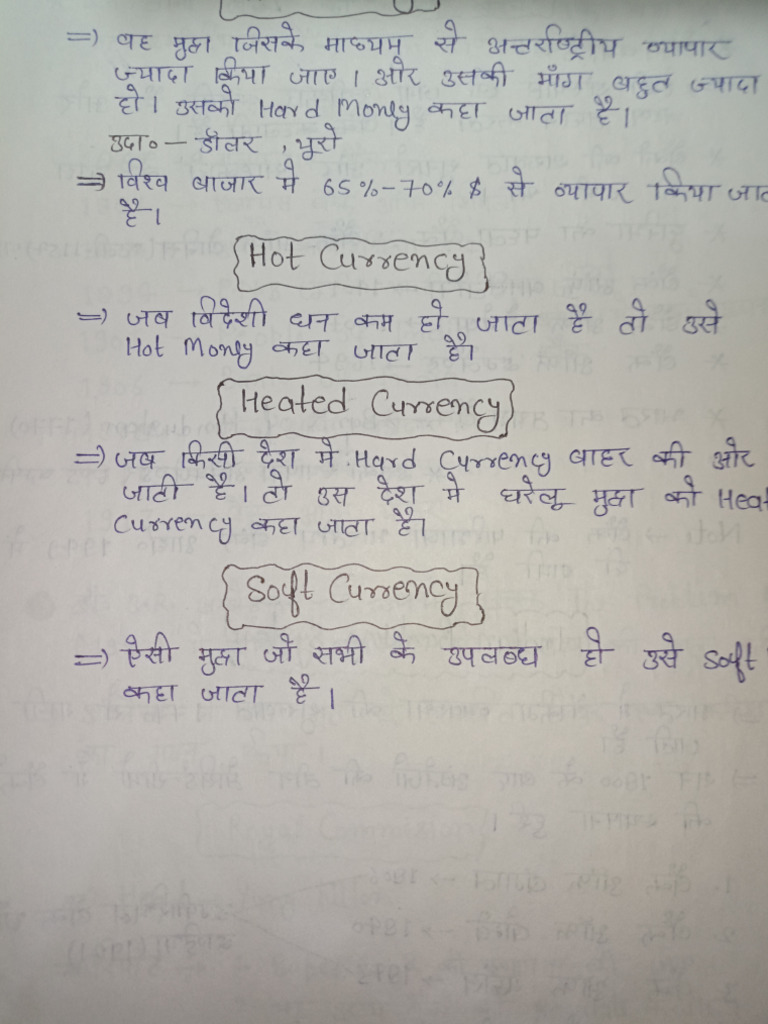 => वह मुद्रा जिसके माध्यम से अन्तर्राष्ट्रीय व्यापार
ज्यादा किया जाए। और उसकी माँग बहुत ज्यादा
हो। उसको Hard Money कहा जाता है।
उदा० - डॉलर , यूरो
=> विश्व बाजार मे 65%-70% $ से व्यापार किया जाता
है।
Hot Currency
=> जब विदेशी धन कम हो जाता है तो उसे
Hot Money कहा जाता है।
Heated Currency
=> जब किसी देश मे Hard Currency बाहर की ओर
जाती है। तो उस देश मे घरेलू मुद्रा को Heat
Currency कहा जाता है।
Soft Currency
=> ऐसी मुद्रा जो सभी के उपलब्ध हो उसे Soft
कहा जाता है।